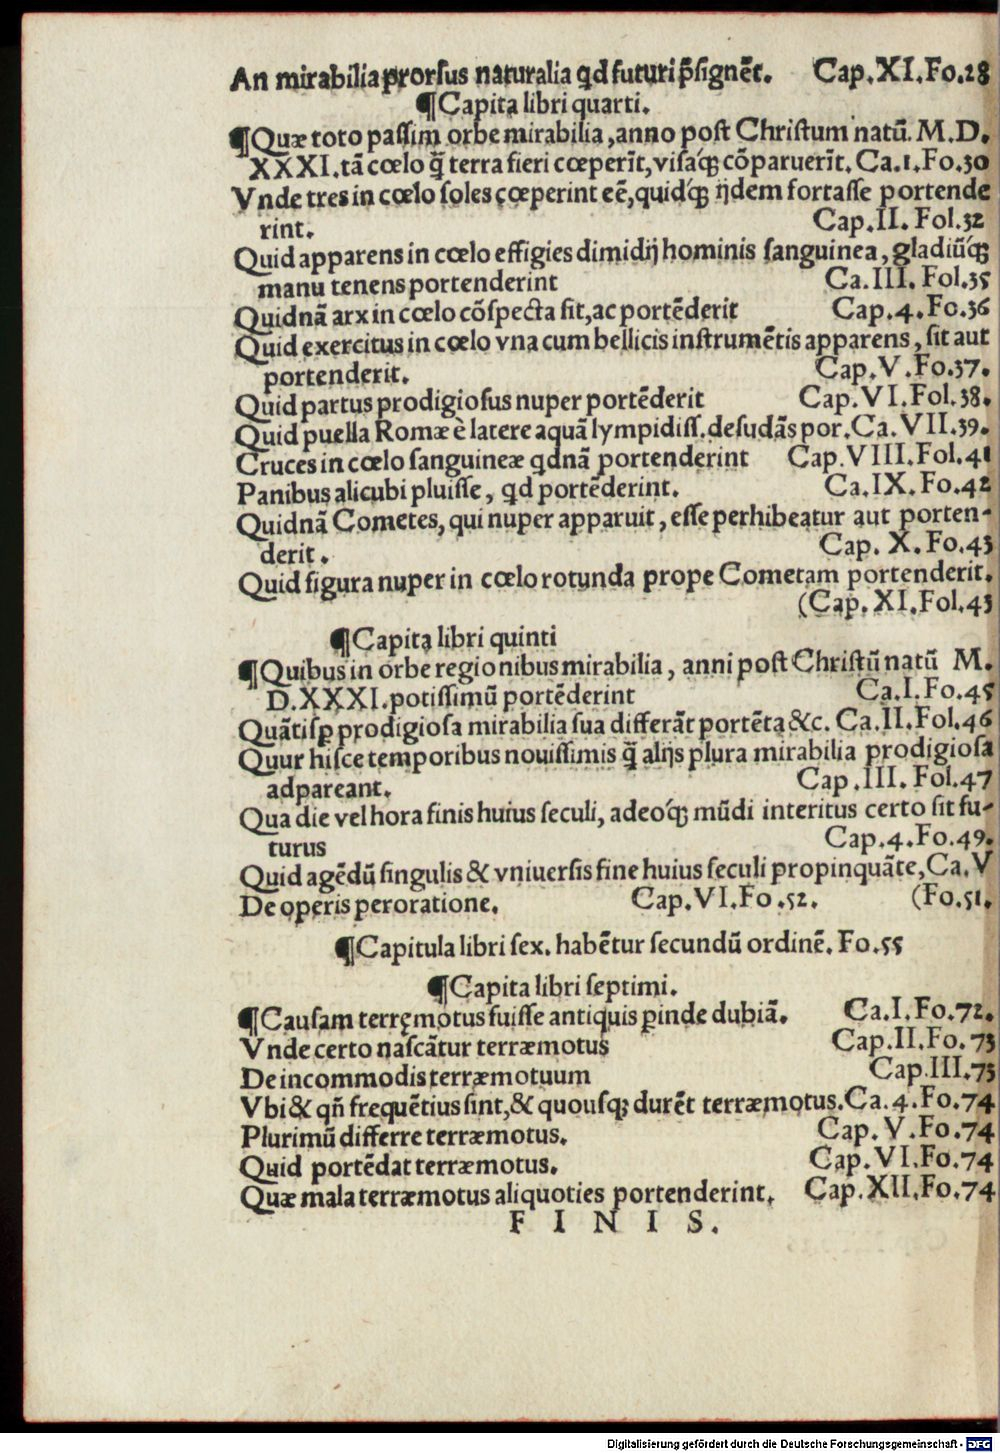 An mirabilia prorsus naturalia qd futuri p̄signēt. Cap.XI.Fo.28
¶Capita libri quarti.
¶Quæ toto passim orbe mirabilia, anno post Christum natū. M.D.
XXXI. tā cœlo q̄ terra fieri cœperīt, visaq́ꝫ cōparuerīt. Ca.1.Fo.30
Vnde tres in cœlo soles cœperint eē, quidq́ꝫ ijdem fortasse portende
rint. Cap.II. Fol.32
Quid apparens in cœlo effigies dimidij hominis sanguinea, gladiūq́ꝫ
manu tenens portenderint Ca.III. Fol.35
Quidnā arx in cœlo cōspecta sit, ac portēderit Cap.4.Fo.36
Quid exercitus in cœlo vna cum bellicis instrumētis apparens, sit aut
portenderit. Cap.V.Fo.37.
Quid partus prodigiosus nuper portēderit Cap.VI.Fol.38.
Quid puella Romæ è latere aquā lympidiss. desudās por.Ca.VII.39.
Cruces in cœlo sanguineæ qdnā portenderint Cap.VIII.Fol.41
Panibus alicubi pluisse, qd portēderint. Ca.IX.Fo.42
Quidnā Cometes, qui nuper apparuit, esse perhibeatur aut porten-
derit. Cap. X.Fo.43
Quid figura nuper in cœlo rotunda prope Cometam portenderit.
(Cap.XI.Fol.43
¶Capita libri quinti
¶Quibus in orbe regionibus mirabilia, anni post Christū natū M.
D.XXXI.potissimū portēderint Ca.I.Fo.45
Quātisꝑ prodigiosa mirabilia sua differāt portēta &c. Ca.II.Fol.46
Quur hisce temporibus nouissimis q̄ alijs plura mirabilia prodigiosa
adpareant. Cap.III. Fol.47
Qua die vel hora finis huius seculi, adeoq́ꝫ mūdi interitus certo sit fu-
turus Cap.4.Fo.49.
Quid agēdū singulis & vniuersis fine huius seculi propinquāte, Ca.V
De operis peroratione. Cap.VI.Fo.52. (Fo.51.
¶Capitula libri sex. habētur secundū ordinē. Fo.55
¶Capita libri septimi.
¶Causam terręmotus fuisse antiquis ꝑinde dubiā. Ca.I.Fo.72.
Vnde certo nascātur terræmotus Cap.II.Fo.73
De incommodis terræmotuum Cap.III.73
Vbi & qñ frequētius sint, & quousqꝫ durēt terræmotus.Ca.4.Fo.74
Plurimū differre terræmotus. Cap.V.Fo.74
Quid portēdat terræmotus. Cap.VI.Fo.74
Quæ mala terræmotus aliquoties portenderint. Cap.XII.Fo.74
F I N I S.
Digitalisierung gefördert durch die Deutsche Forschungsgemeinschaft - DFG